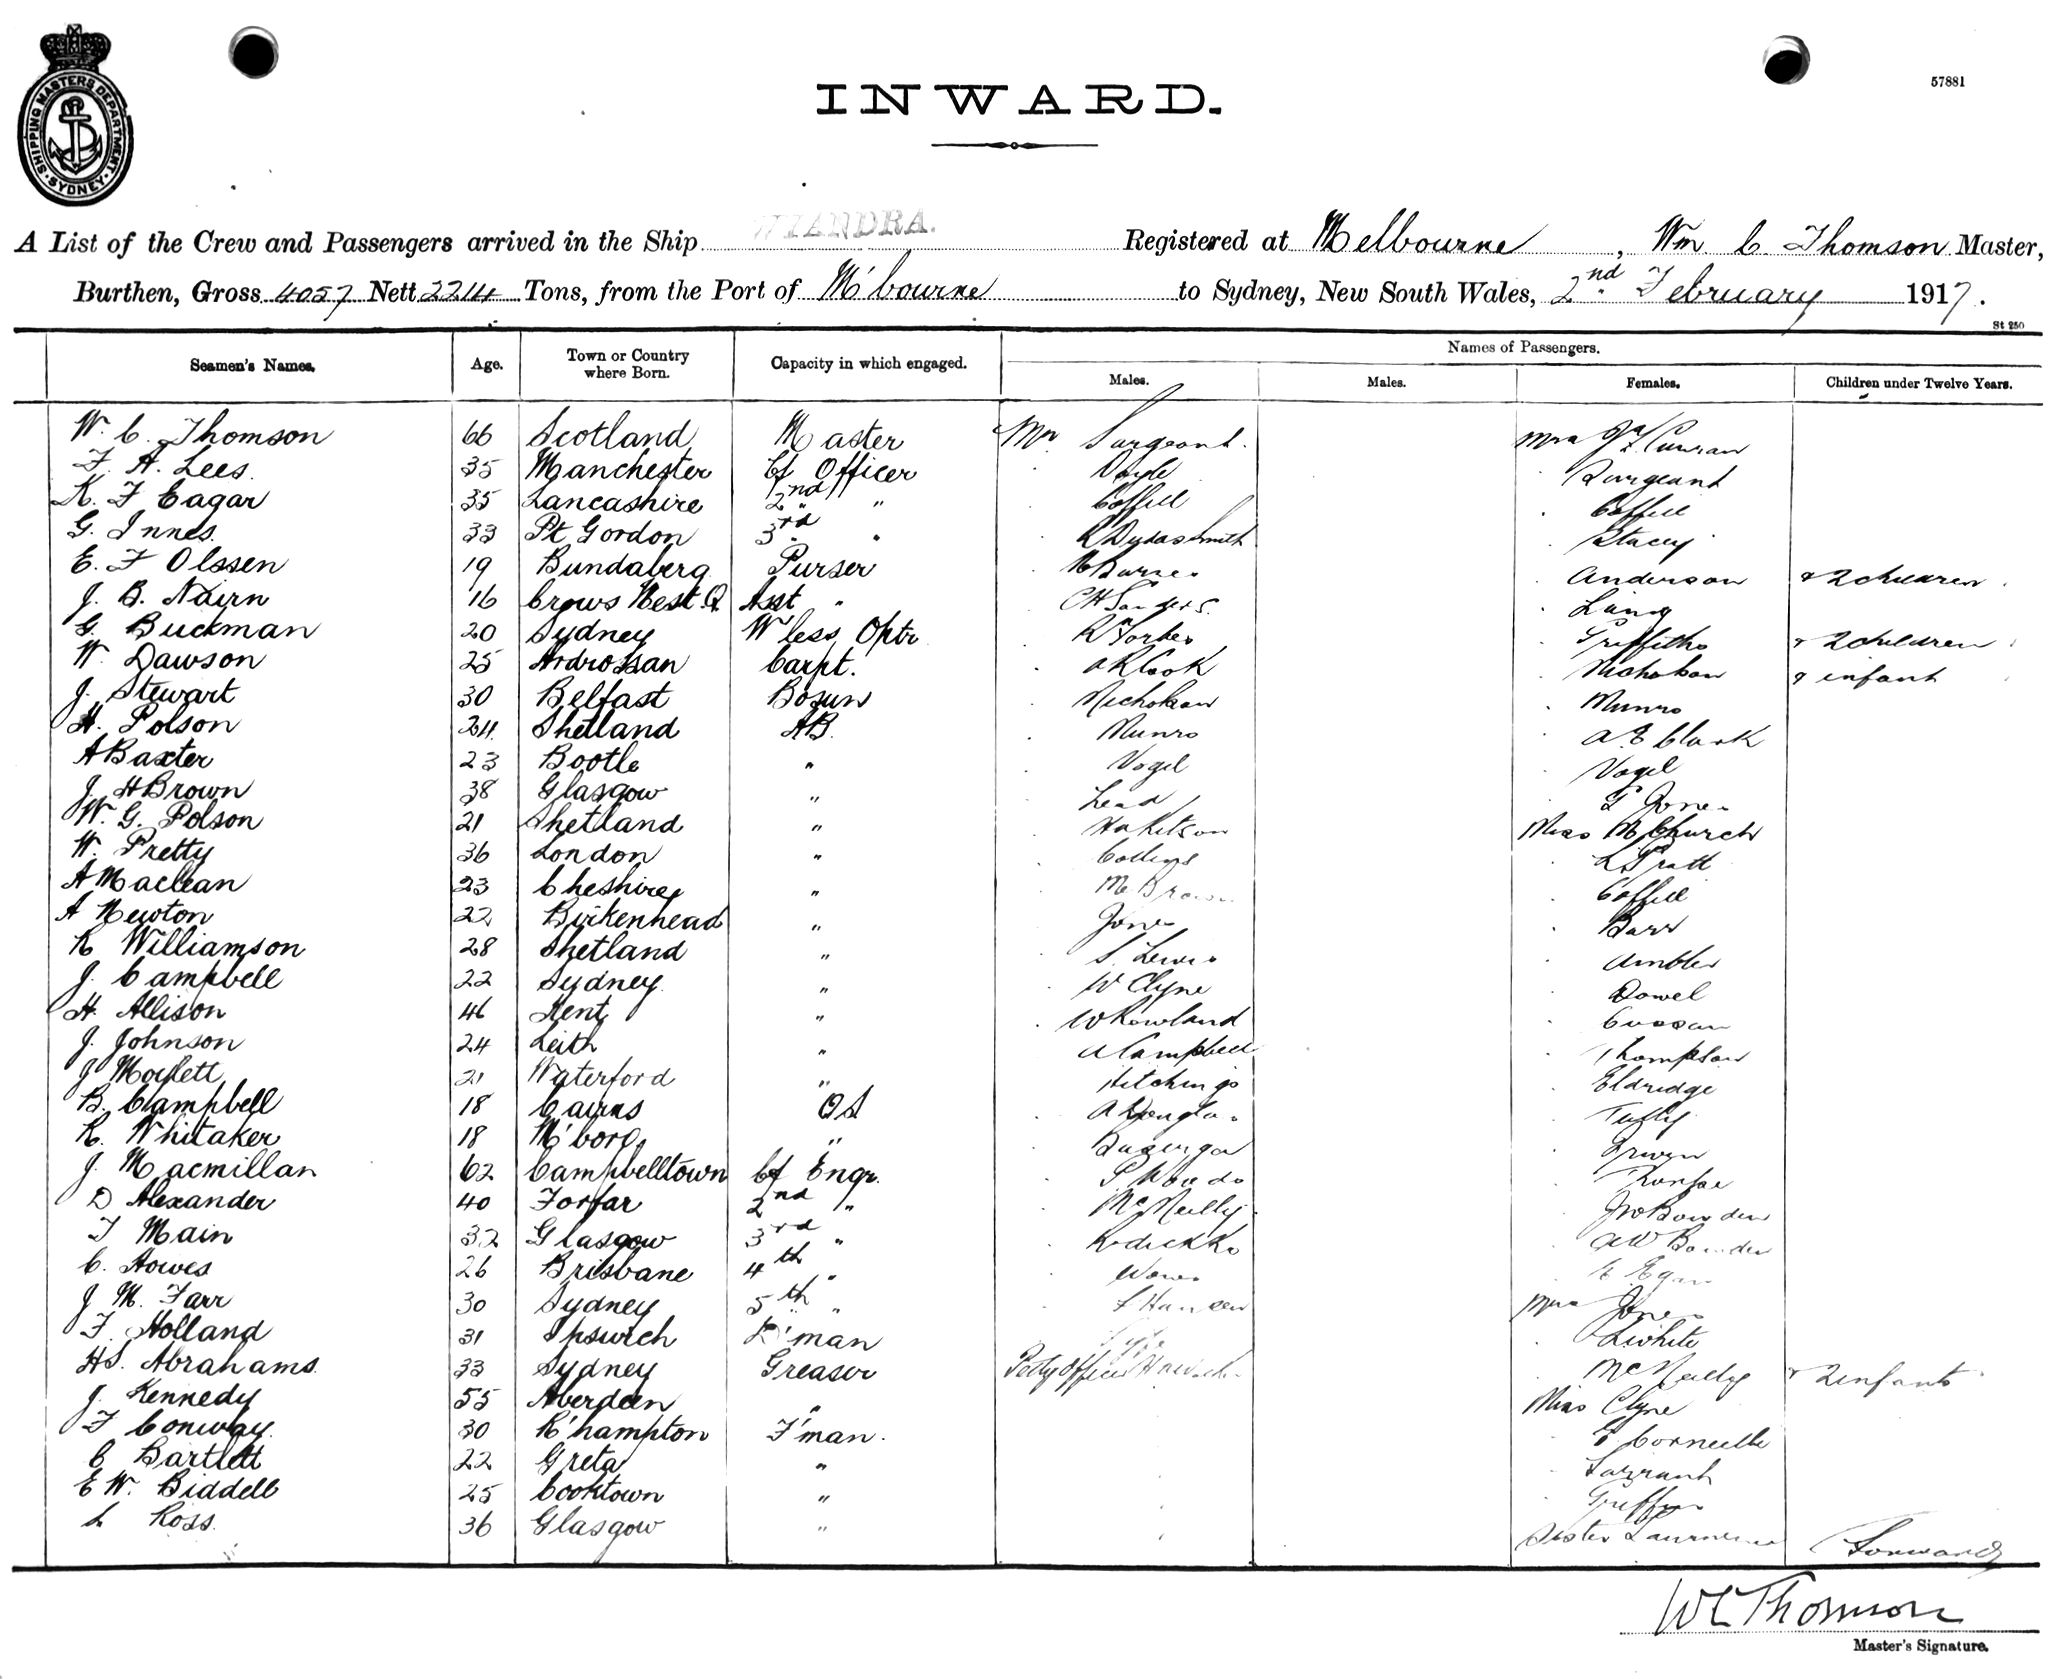 SHIPPING MASTERS DEPARTMENT. SYDNEY.
57881
INWARD.
A List of the Crew and Passengers arrived in the Ship WYANDRA. Registered at Melbourne, Wm C Thomson Master,
Burthen, Gross 4057 Nett 2214 Tons, from the Port of M'bourne to Sydney, New South Wales, 2nd February 1917.
St 250
Names of Passengers.
Seamen's Names. Age. Town or Country where Born. Capacity in which engaged. Males. Males. Females. Children under Twelve Years.
W. C. Thomson 66 Scotland Master Mr Sargeant. Mrs Curran
F. A. Lees. 35 Manchester Cf Officer Doyle Sargeant
K. F Eagar 35 Lancashire 2nd " Coffill Coffill
G. Innes. 33 Pt Gordon 3rd " Stacey
E. F Olssen 19 Bundaberg Purser Barnes Anderson & 2 children
J. B. Nairn 16 Crows Nest. Q Asst " C H Sanders. Laing
G. Buckman 20 Sydney W'less Optr R Forbes Griffiths & 2 children
W. Dawson 25 Ardrossan Carpt. Cook Nicholson & infant
J. Stewart 30 Belfast Bosun Nicholson Munro
H. Polson 24 Shetland AB. Munro A E Clark
A Baxter 23 Bootle " Vogel Vogel
J. H Brown 38 Glasgow " Lead Jones
W. G. Polson 21 Shetland " Miss M Church
W. Pretty 36 London " Collins L Pratt
A Maclean 23 Cheshire " Brown Coffill
A Newton 22 Birkenhead " Jones Barr
R Williamson 28 Shetland " S. Lewis Ambler
J. Campbell 22 Sydney " W Clyne Dowel
H. Allison 46 Kent " W Rowland Cussan
J. Johnson 24 Leith " A Campbell Thompson
J 21 Waterford " Hitchings Eldridge
B. Campbell 18 Cairns OS A Douglas Tully
R. Whitaker 18 M'boro " Irwin
J. Macmillan 62 Campbelltown Cf Engr. Woods
D Alexander 40 Forfar 2nd " McNeilly J W Bowden
T Main 32 Glasgow 3rd " A W Bowden
C. Howes 26 Brisbane 4th " Egan
J M. Farr 30 Sydney 5th " Hansen Mrs Jones
F. Holland 31 Ipswich D'man White
HS. Abrahams. 33 Sydney Greaser Petty Officer McNeilly & 2 infants
J. Kennedy 55 Aberdeen " Miss Clyne
F Conway. 30 R'hampton F'man. Corneille
C Bartlett 22 Greta " Tarrant
E W. Biddell 25 Cooktown " Griffin
L Ross. 36 Glasgow " Sister Laurence Forward
WC Thomson
Master's Signature.